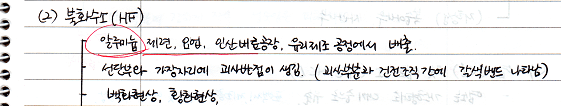 (2) 불화수소(HF)
알루미늄 제련, 요업, 인산비료공장, 유리제조 공정에서 배출.
선단부와 가장자리에 괴사반점이 생김 (괴사부분과 건전조직간에 갈색밴드 나타남)
백화현상, 황화현상,